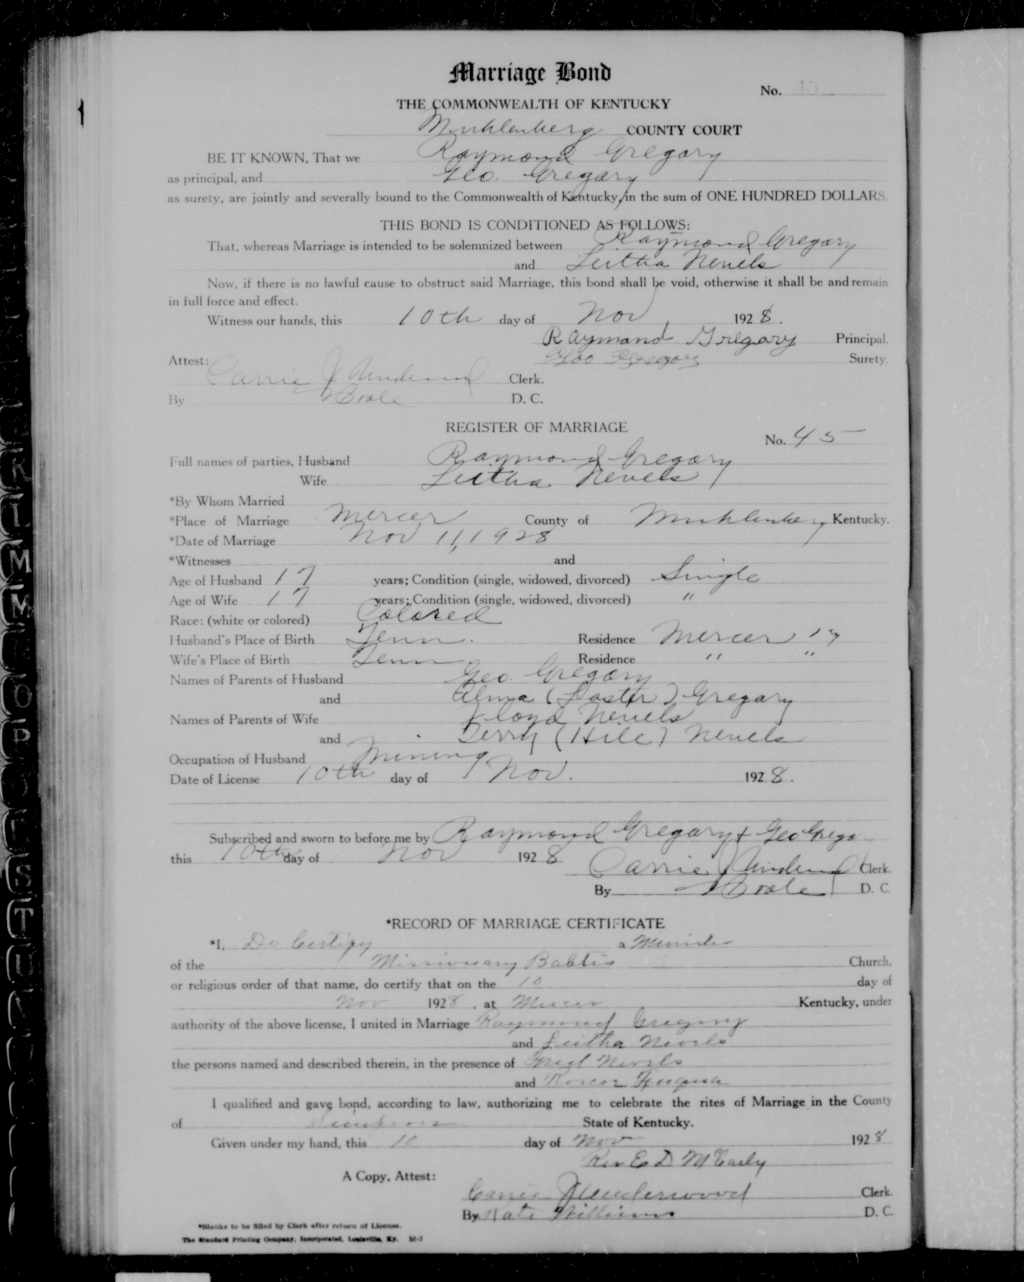 Marriage Bond
No.
THE COMMONWEALTH OF KENTUCKY
Muhlenberg COUNTY COURT
BE IT KNOWN, That we Raymond Gregory
as principal, and Geo. Gregory
as surety, are jointly and severally bound to the Commonwealth of Kentucky, in the sum of ONE HUNDRED DOLLARS.
THIS BOND IS CONDITIONED AS FOLLOWS:
That, whereas Marriage is intended to be solemnized between Raymond Gregory
and Leitha Nevels
Now, if there is no lawful cause to obstruct said Marriage, this bond shall be void, otherwise it shall be and remain
in full force and effect.
Witness our hands, this 10th day of Nov 1928.
Raymond Gregory Principal.
Attest: Geo Gregory Surety.
Carrie J Underwood Clerk.
By D. C.
REGISTER OF MARRIAGE
No. 45
Full names of parties, Husband Raymond Gregory
Wife Leitha Nevels
*By Whom Married
*Place of Marriage Mercer County of Muhlenberg Kentucky.
*Date of Marriage Nov 11, 1928
*Witnesses and
Age of Husband 17 years; Condition (single, widowed, divorced) Single
Age of Wife 17 years; Condition (single, widowed, divorced) "
Race: (white or colored) Colored
Husband's Place of Birth Tenn. Residence Mercer Ky
Wife's Place of Birth Tenn Residence " "
Names of Parents of Husband Geo Gregory
and Alma ( ) Gregory
Names of Parents of Wife Floyd Nevels
and ( ) Nevels
Occupation of Husband Mining
Date of License 10th day of Nov. 1928.
Subscribed and sworn to before me by Raymond Gregory + Geo Grego
this 10th day of Nov 1928
Carrie J Underwood Clerk.
By D. C.
*RECORD OF MARRIAGE CERTIFICATE
*I, Do Certify a Minister
of the Missionary Babtis Church,
or religious order of that name, do certify that on the 10 day of
Nov 1928, at Mercer Kentucky, under
authority of the above license, I united in Marriage Raymond Gregory
and Leitha Nevels
the persons named and described therein, in the presence of Nevels
and Roscoe Fuqua
I qualified and gave bond, according to law, authorizing me to celebrate the rites of Marriage in the County
of Simpson State of Kentucky.
Given under my hand, this 10 day of Nov 1928
Rev E D
A Copy, Attest:
Carrie J Underwood Clerk.
By Kate Williams D. C.
*Blanks to be filled by Clerk after return of License.
The Standard Printing Company, Incorporated, Louisville, Ky.